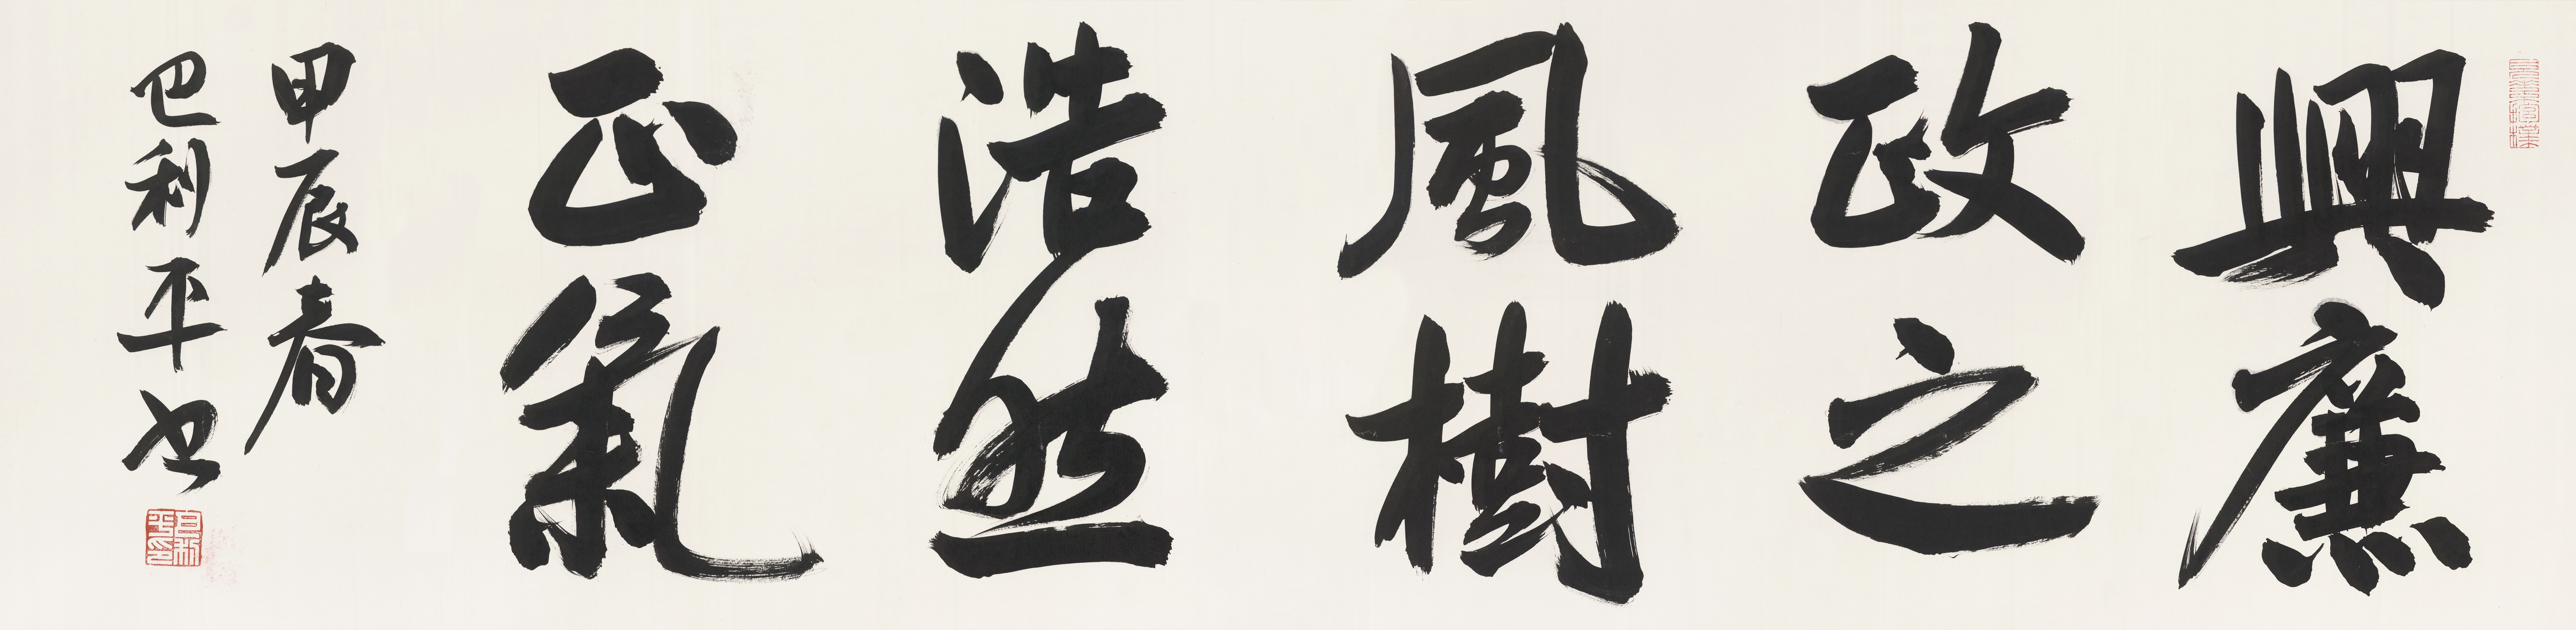 興廉
政之
風樹
浩然
正氣
甲辰春
巴利平書